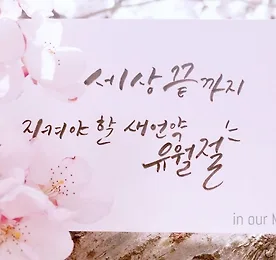 세상 끝까지
지켜야 할 새언약
유월절
in our